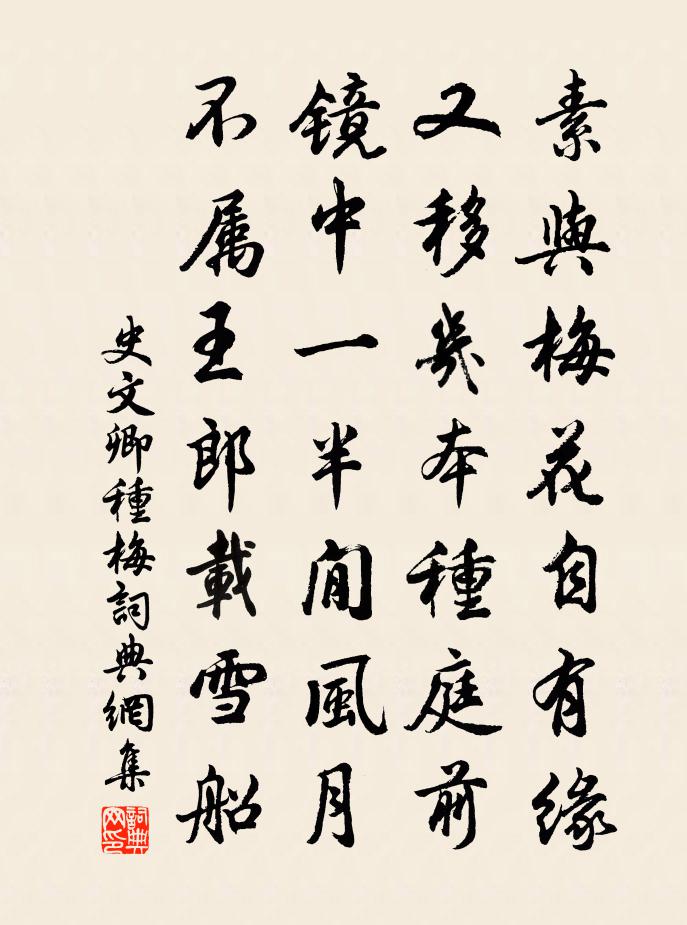 素與梅花自有緣
又移幾本種庭前
鏡中一半閒風月
不属王郎載雪船
史文卿種梅詞典網集
詞典网印